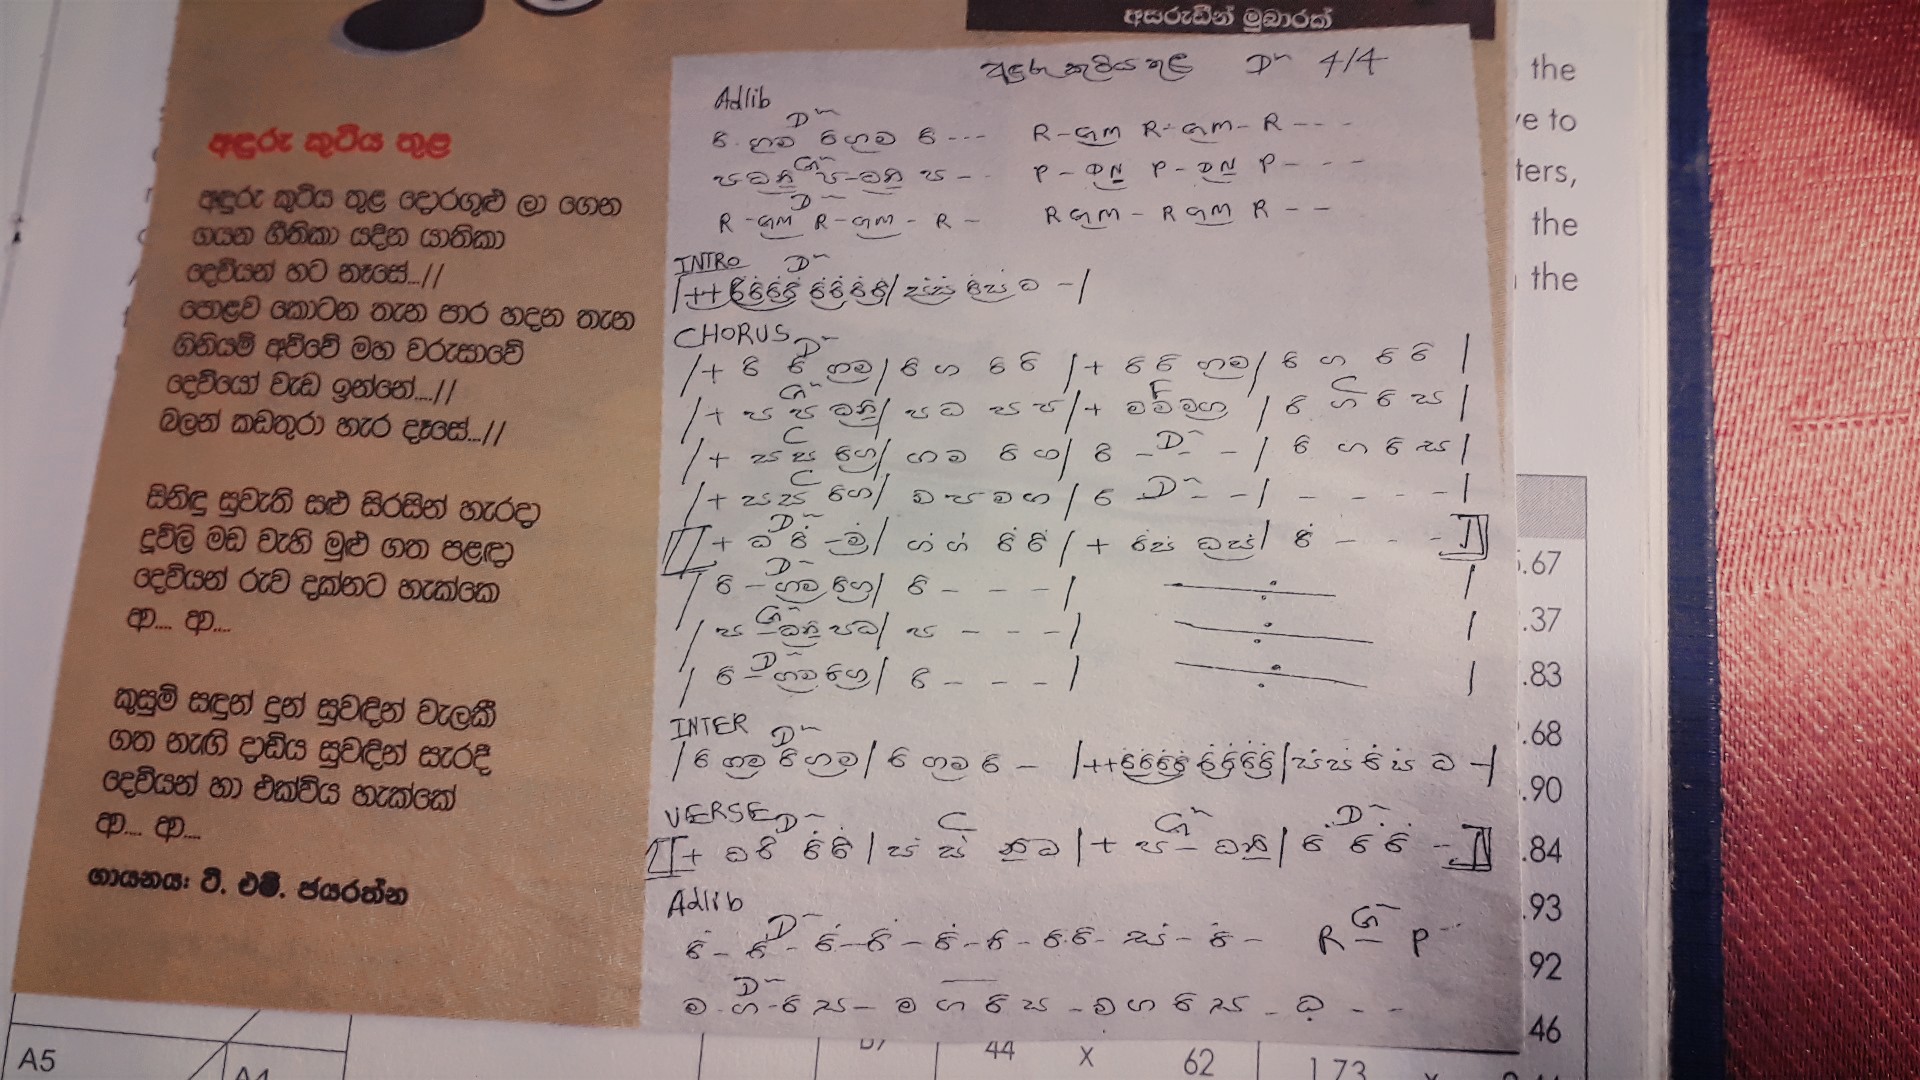 අසරුඩීන් මුබාරක්
අඳුරු කුටිය තුළ
අඳුරු කුටිය තුළ දොරගුළු ලා ගෙන
ගයන ගීතිකා යදින යාතිකා
දෙවියන් හට නෑසේ...//
පොළව කොටන තැන පාර හදන තැන
ගිනියම් අව්වේ මහ වරුසාවේ
දෙවියෝ වැඩ ඉන්නේ....//
බලන් කඩතුරා හැර දෑසේ...//
සිනිඳු සුවැති සළු සිරසින් හැරදා
දූවිලි මඩ වැහි මුළු ගත පළඳා
දෙවියන් රුව දක්නට හැක්කෙ
ආ.... ආ....
කුසුම් සඳුන් දුන් සුවඳින් වැලකී
ගත නැඟි දාඩිය සුවඳින් සැරදී
දෙවියන් හා එක්විය හැක්කේ
ආ.... ආ....
ගායනය: ටී. එම්. ජයරත්න
අඳුරු කුටිය තුළ Dm 4/4
Adlib
Dm
රි - ගම රි ගම රි - - - R - GM R - GM - R - - -
Gm
පධනි ප - ධනි ප - - P - DN P - DN P - - -
D -
R - GM R - GM - R - RGM - RGM R - -
INTRO Dm
|++රිරිරිරි රිරිරිරි| සස රිස ධ -|
CHORUS Dm
|+ රි රි ගම| රි ග රි රි |+ රි රි ගම| රි ග රි රි |
Gm F C
|+ ප ප ධනි| පධ පප|+ මම මග | රි ග රි ස|
C Dm
|+ සස රිග| ගම රිග| රි - - -| රි ග රි ස|
C Dm
|+ සස රිග| ම ප ම ග | රි - - -| - - - -|
Dm
[+ ධ රි - ම| ග ග රි රි |+ රිස ධස| රි - - -]
Dm
| රි - ගම රිග| රි - - -|
Gm
| ප - ධනි පධ| ප - - -|
Dm
| රි - ගම රිග| රි - - -|
INTER Dm
|රි ගම රි ගම| රි ගම රි - |++රිරිරිරි රිරිරිරි|සස රිස ධ -|
VERSE Dm C Gm Dm
[+ ධරි රිරි |ස ස නිධ |+ ප - ධනි| රි රි රි -]
Adlib
Dm Gm
රි - රි - රි - රි - රි - රි - රි රි - ස - රි - R - P - -
Dm
ම - ග - රි ස - ම ග රි ස - ම ග රි ස - ධ - -
the
've to
ters,
the
the
5.67
.37
.83
.68
.90
.84
.93
92
46
A5
44 X 62 1.73